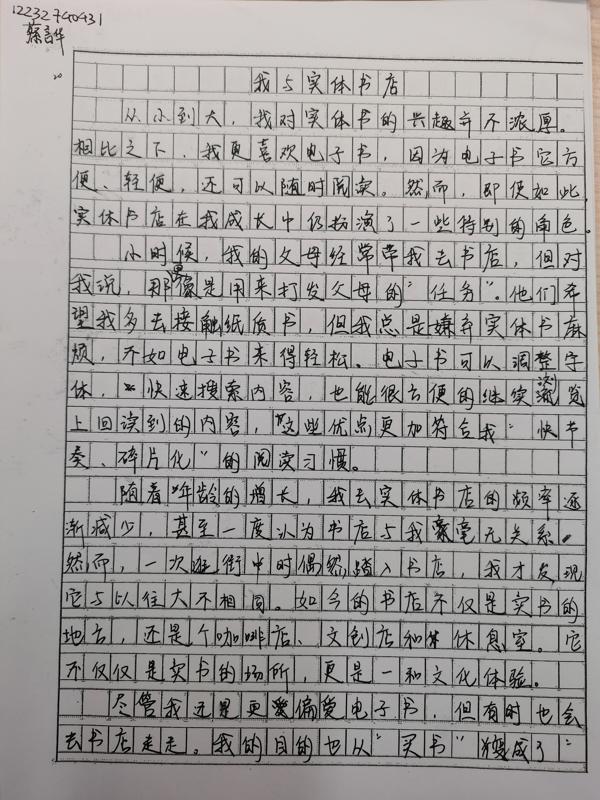 12232740431
蔡言华
我与实体书店
从小到大，我对实体书的兴趣并不浓厚。
相比之下、我更喜欢电子书，因为电子书它方
便、轻便，还可以随时阅读。然而，即使如此，
实体书店在我成长中仍扮演了一些特别的角色。
小时候，我的父母经常带我去书店，但对
我说，那更像是用来打发父母的“任务”。他们希
望我多去接触纸质书，但我总是嫌弃实体书麻
烦，不如电子书来得轻松。电子书可以调整字
体，快速搜索内容，也能很方便的继续浏览
上回读到的内容，这些优点更加符合我“快节
奏、碎片化”的阅读习惯。
随着年龄的增长，我去实体书店的频率逐
渐减少，甚至一度认为书店与我毫无关系。
然而，一次逛街中时偶然踏入书店，我才发现
它与以往大不相同。如今的书店不仅是卖书的
地方，还是个咖啡店、文创店和休息室。它
不仅仅是买书的场所，更是一种文化体验。
尽管我还是更爱偏爱电子书，但有时也会
去书店走走。我的目的也从“买书”变成了“